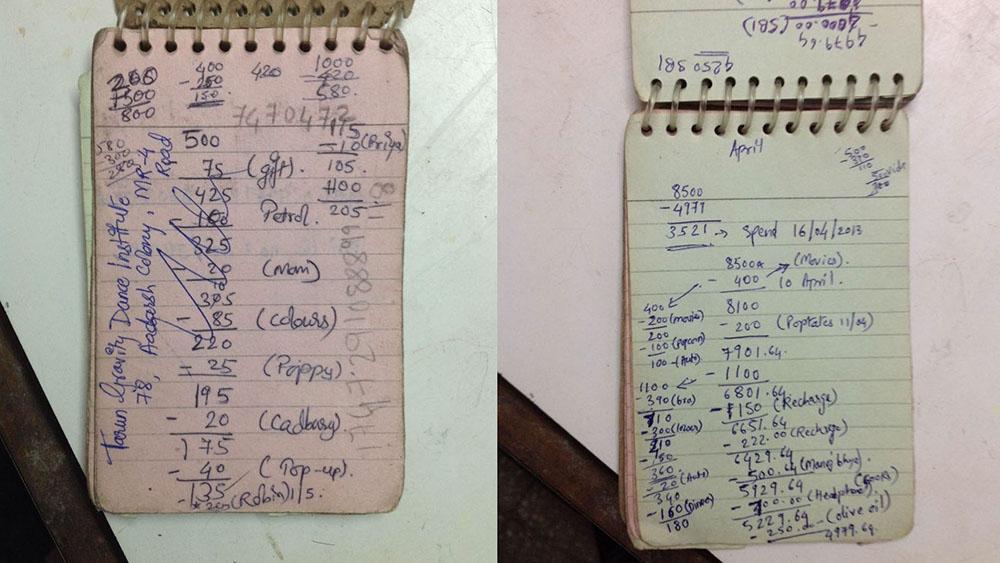 200
400
420
1000
- 250
- 420
150
580
800
7470472
115
500
- 10 (Priya)
75 (gift).
105
425
100
Petrol.
205
325
20 (Mam)
305
- 85 (Colours)
220
- 25 (Poppy)
195
- 20 (Cadbury)
175
- 40 (Pop-up).
135
(Robin) 1/5.
Tarun Gravity Dance Institute
78, Aadarsh Colony, MR-4
Road
9250 SBI
4979.64
- 2000.00 (SBI)
April
8500
- 4979
3521 → Spend 16/04/2013
8500 (Movies).
- 400 10 April.
8100
- 200 (Poptates 11/04)
7901.64.
- 1100
6801.64
- 150 (Recharge)
6651.64
- 222.00 (Recharge)
6429.64
- 500.64
5929.64
- 700.00 (Headphone)
5229.64
- 250.00 (olive oil)
4979.64.
400
- 200 (Movie)
200
- 100 (Popcorn)
100 - (Auto)
1100
- 390 (bro)
710
- 300
410
- 150
360
- 20 (Auto)
340
- 160 (Dinner)
180